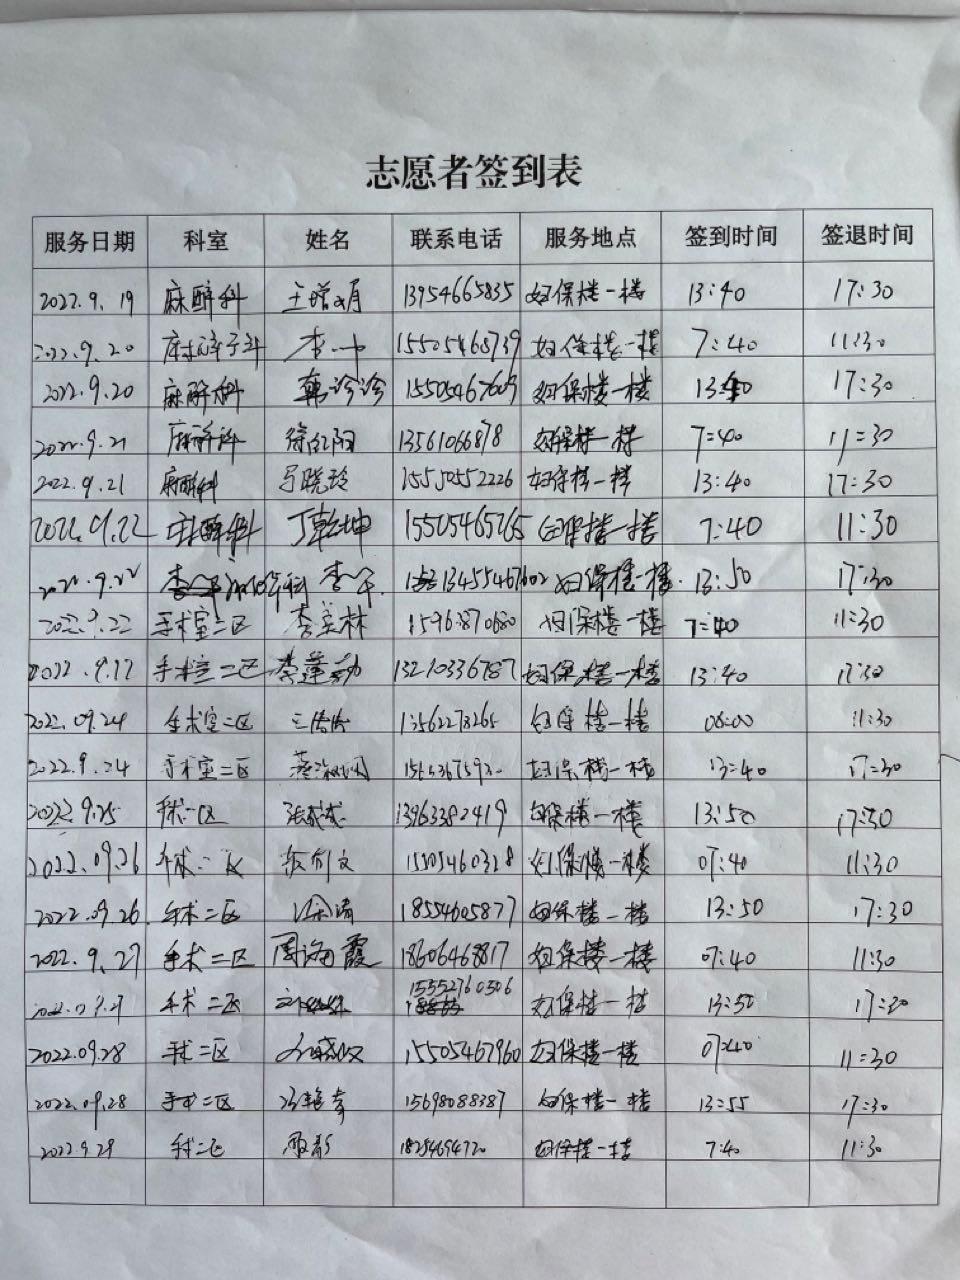 志愿者签到表
服务日期 科室 姓名 联系电话 服务地点 签到时间 签退时间
2022.9.19 麻醉科 13954665835 妇保楼一楼 13:40 17:30
2022.9.20 麻醉科 李 15505468739 妇保楼一楼 7:40 11:30
2022.9.20 麻醉科 韩诊诊 妇保楼一楼 13:40 17:30
2022.9.21 麻醉科 徐红阳 13561066878 妇保楼一楼 7:40 11:30
2022.9.21 麻醉科 马晓玲 15550552226 妇保楼一楼 13:40 17:30
2022.9.22 麻醉科 丁乾坤 15505465265 妇保楼一楼 7:40 11:30
2022.9.22 麻醉科 李 13455467602 妇保楼一楼 13:50 17:30
2022.9.22 手术室二区 李美林 15963870680 妇保楼一楼 7:40 11:30
2022.9.22 手术室二区 李莲勤 13210336787 妇保楼一楼 13:40 17:30
2022.09.24 手术室二区 13562278265 妇保楼一楼 08:00 11:30
2022.9.24 手术室二区 妇保楼一楼 13:40 17:30
2022.9.25 手术一区 13963382419 妇保楼一楼 13:50 17:30
2022.09.26 手术二区 15505460328 妇保楼一楼 07:40 11:30
2022.09.26 手术二区 18554605877 妇保楼一楼 13:50 17:30
2022.9.27 手术二区 周海霞 18606468817 妇保楼一楼 07:40 11:30
2022.09.27 手术二区 15552760506 妇保楼一楼 13:50 17:30
2022.09.28 手术二区 15505467960 妇保楼一楼 07:40 11:30
2022.09.28 手术二区 15698088387 妇保楼一楼 13:55 17:30
2022.9.29 手术二区 妇保楼一楼 7:40 11:30